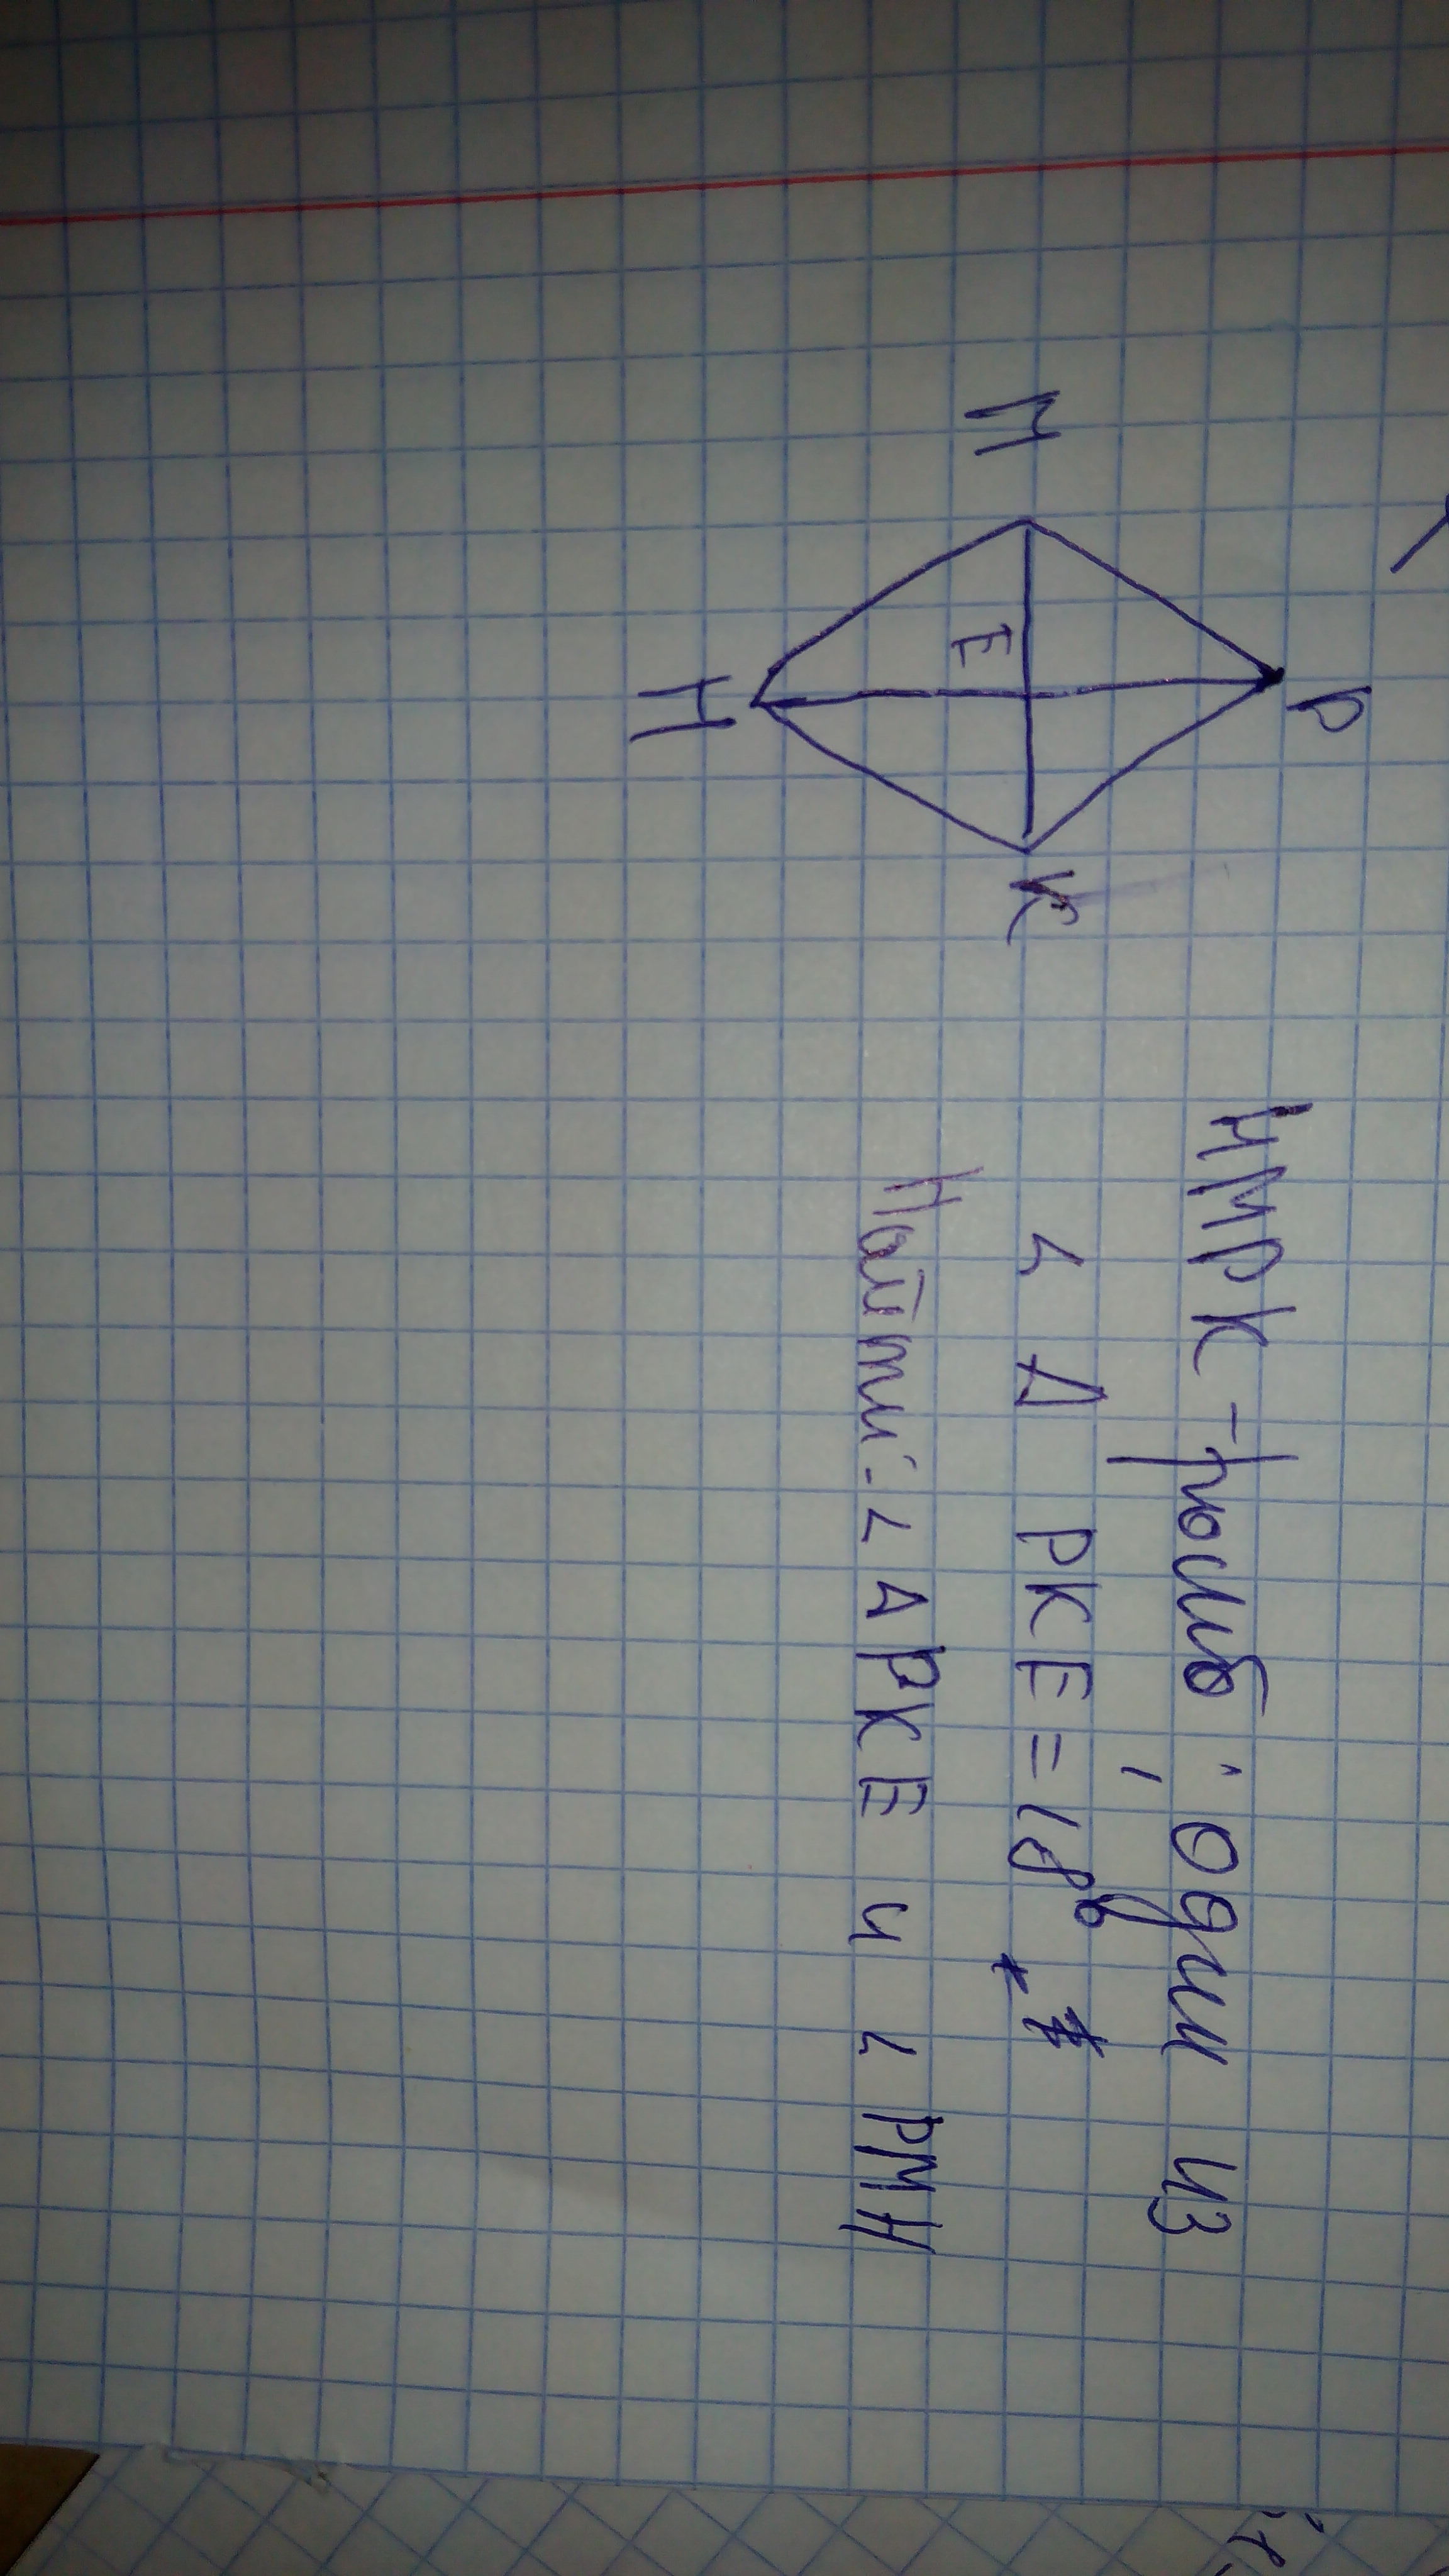 P
M
E
K
H
НМРК - ромб; один из
∠ Δ PKE = 18°
Найти: ∠ ΔPKE и ∠ PMH